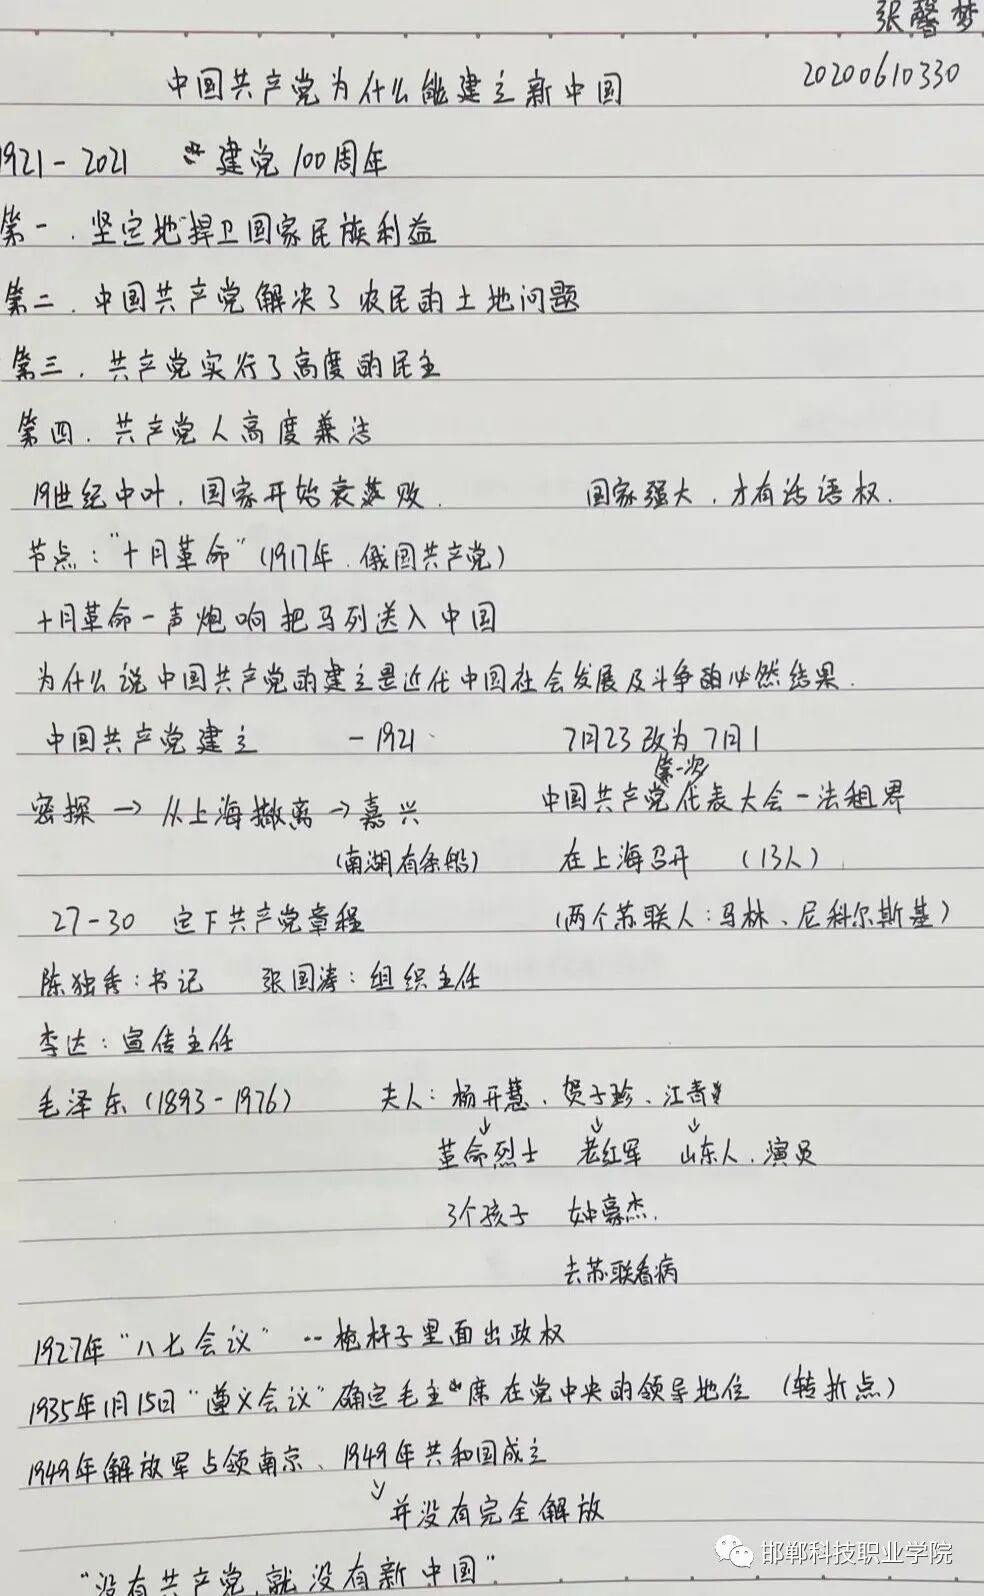 张馨梦
中国共产党为什么能建立新中国 20200610330
1921-2021 建党100周年
第一.坚定地捍卫国家民族利益
第二.中国共产党解决了农民的土地问题
第三.共产党实行了高度的民主
第四.共产党人高度兼洁
19世纪中叶,国家开始衰败. 国家强大,才有话语权.
节点:"十月革命"(1917年.俄国共产党)
十月革命一声炮响把马列送入中国
为什么说中国共产党的建立是近代中国社会发展及斗争的必然结果.
中国共产党建立 -1921. 7月23改为7月1
第一次
密探→从上海撤离→嘉兴 中国共产党代表大会-法租界
(南湖有条船) 在上海召开 (13人)
27-30 定下共产党章程 (两个苏联人:马林、尼科尔斯基)
陈独秀:书记 张国涛:组织主任
李达:宣传主任
毛泽东(1893-1976) 夫人:杨开慧、贺子珍、江青
↓ ↓ ↓
革命烈士 老红军 山东人.演员
3个孩子 女中豪杰.
去苏联看病
1927年"八七会议" --枪杆子里面出政权
1935年1月15日"遵义会议"确定毛主席在党中央的领导地位 (转折点)
1949年解放军占领南京、1949年共和国成立
↓
并没有完全解放
"没有共产党,就没有新中国"
邯郸科技职业学院